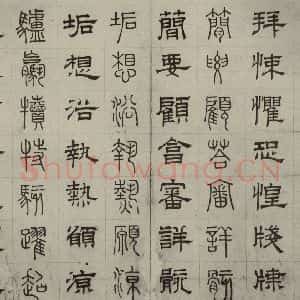 拜悚懼恐惶牋牒
簡要顧答審詳骸
簡要顧答審詳骸
垢想浴執熱願涼
垢想浴執熱願涼
驢騾犢特駭躍超
Shufawang.CN